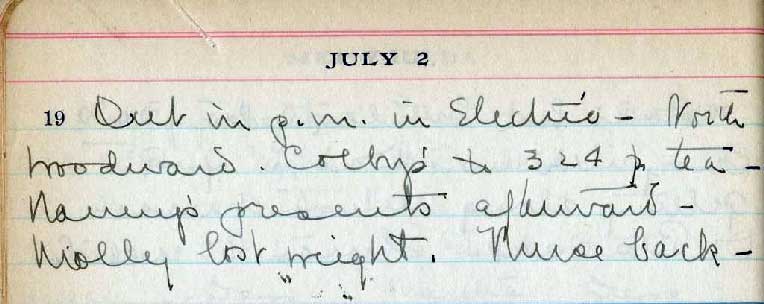 JULY 2
19 Out in p.m. in Electric - North
Woodward. Colby's to 324 for tea -
Nanny's presents afterward -
Molly lost weight. Nurse back -